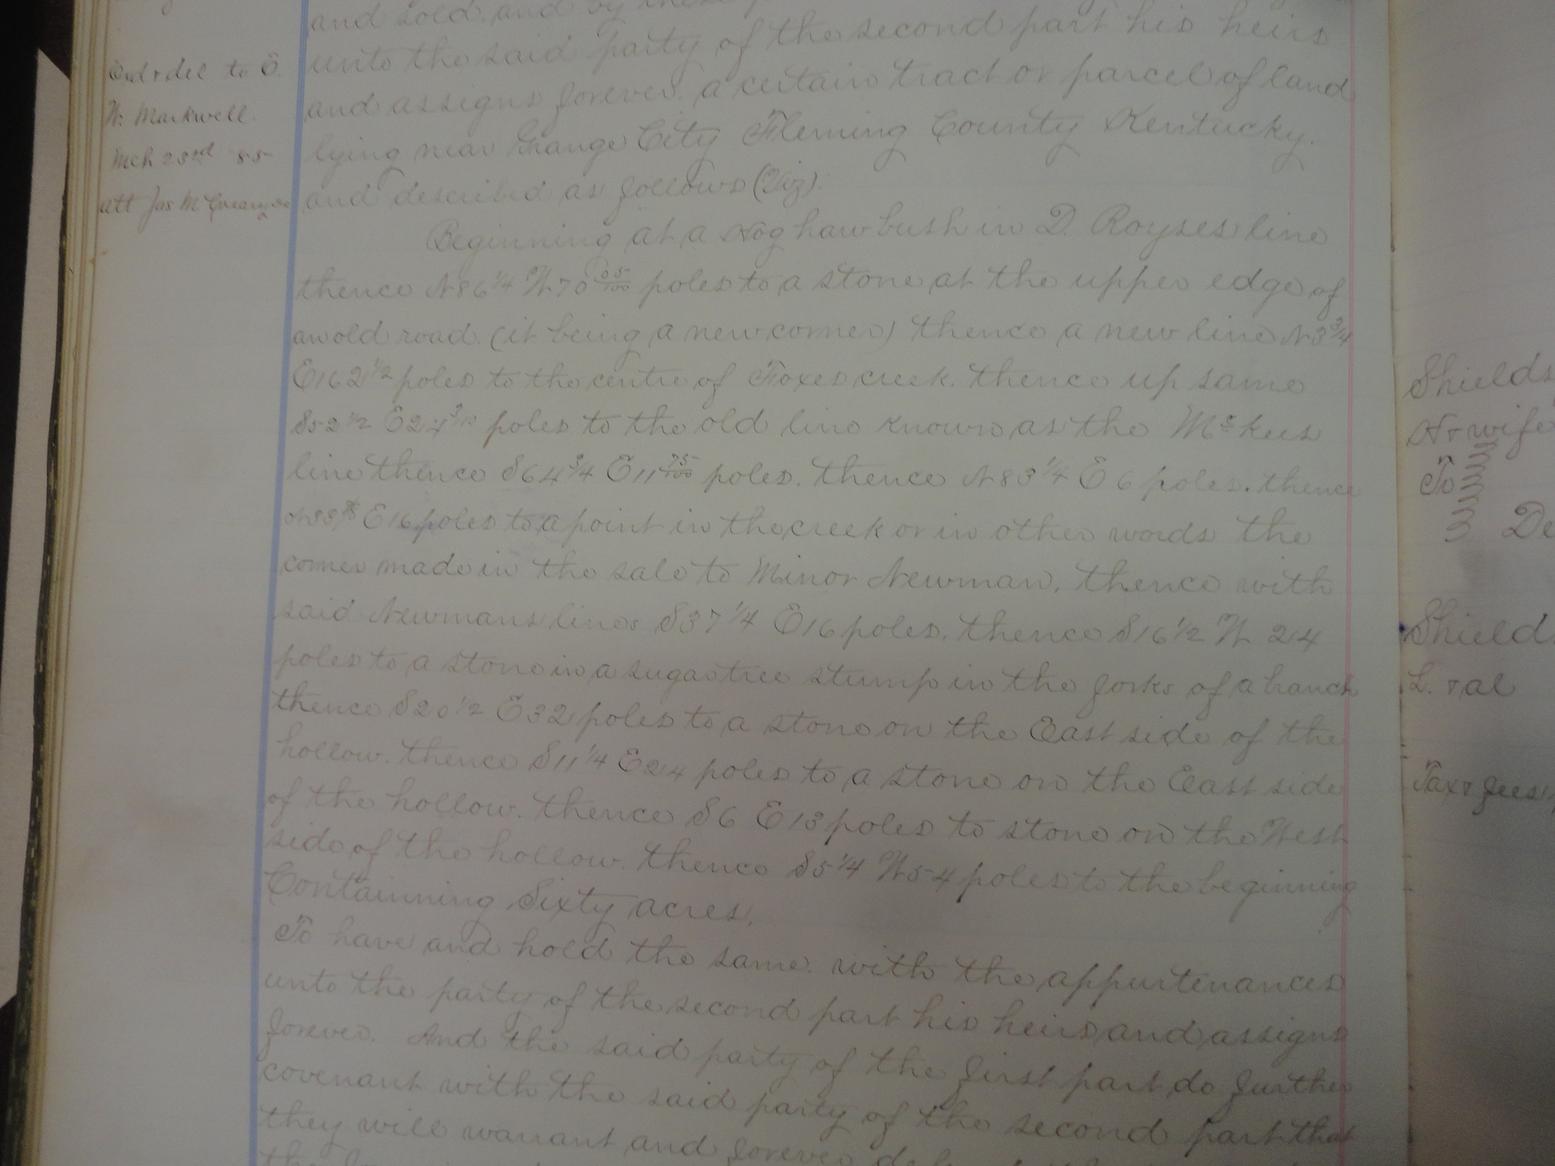 and sold and by these
unto the said party of the second part his heirs
and assigns forever. a certain tract or parcel of land
lying near Grange City Fleming County Kentucky.
and described as follows (Viz).
Beginning at a Hog haw bush in D Royses line
thence N86 1/4 W70 05/100 poles to a stone at the upper edge of
an old road (it being a new corner) thence a new line N3 3/4
E162 1/2 poles to the centre of Foxes creek. thence up same
S52 1/2 E24 3/10 poles to the old line known as the McKees
line thence S64 3/4 E11 75/100 poles. thence N83 1/4 E 6 poles. thence
E16 poles to a point in the creek or in other words the
corner made in the sale to Minor Newman. thence with
said Newmans lines S37 1/4 E16 poles. thence S16 1/2 W 24
poles to a stone in a sugar tree stump in the forks of a branch
thence S20 1/2 E32 poles to a stone on the East side of the
hollow. thence S11 1/4 E24 poles to a stone on the East side
of the hollow. thence S6 E13 poles to stone on the West
side of the hollow. thence S5 1/4 W54 poles to the beginning
Containing Sixty acres.
To have and hold the same. with the appurtenances
unto the party of the second part his heirs and assigns
forever. And the said party of the first part do further
covenant with the said party of the second part that
they will warrant and forever
End & del to E.
W. Markwell.
Mch 23rd 85
att Jas M
Shields
H & wife
To
De
Shield
L. & al
Tax & fees